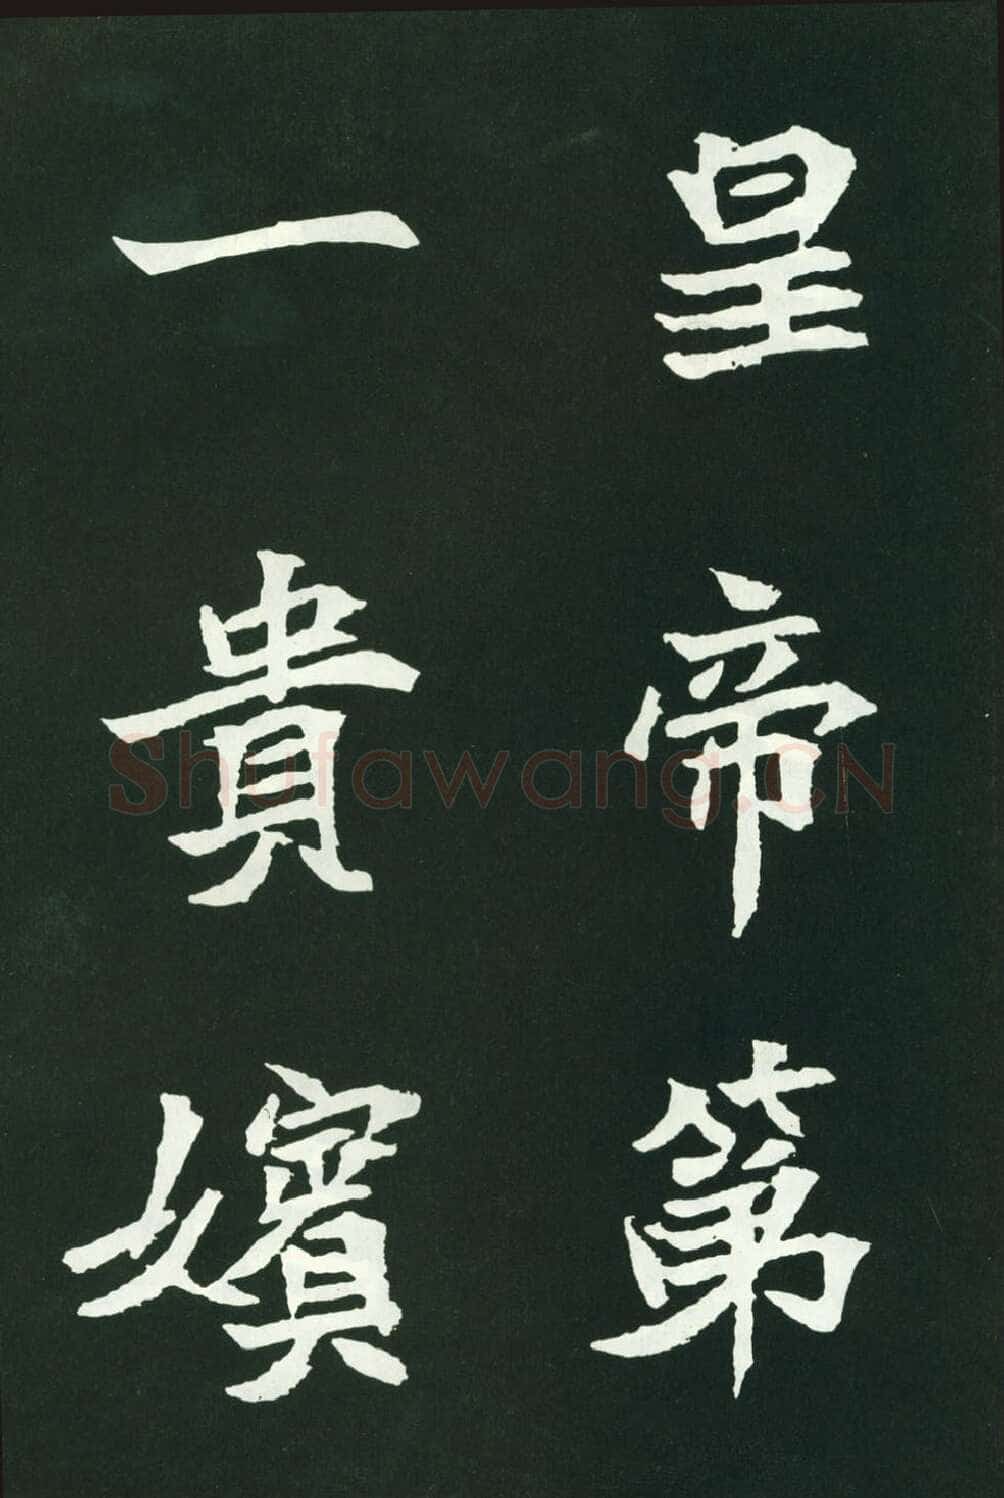 皇帝第
一貴嬪
Shufawang.CN